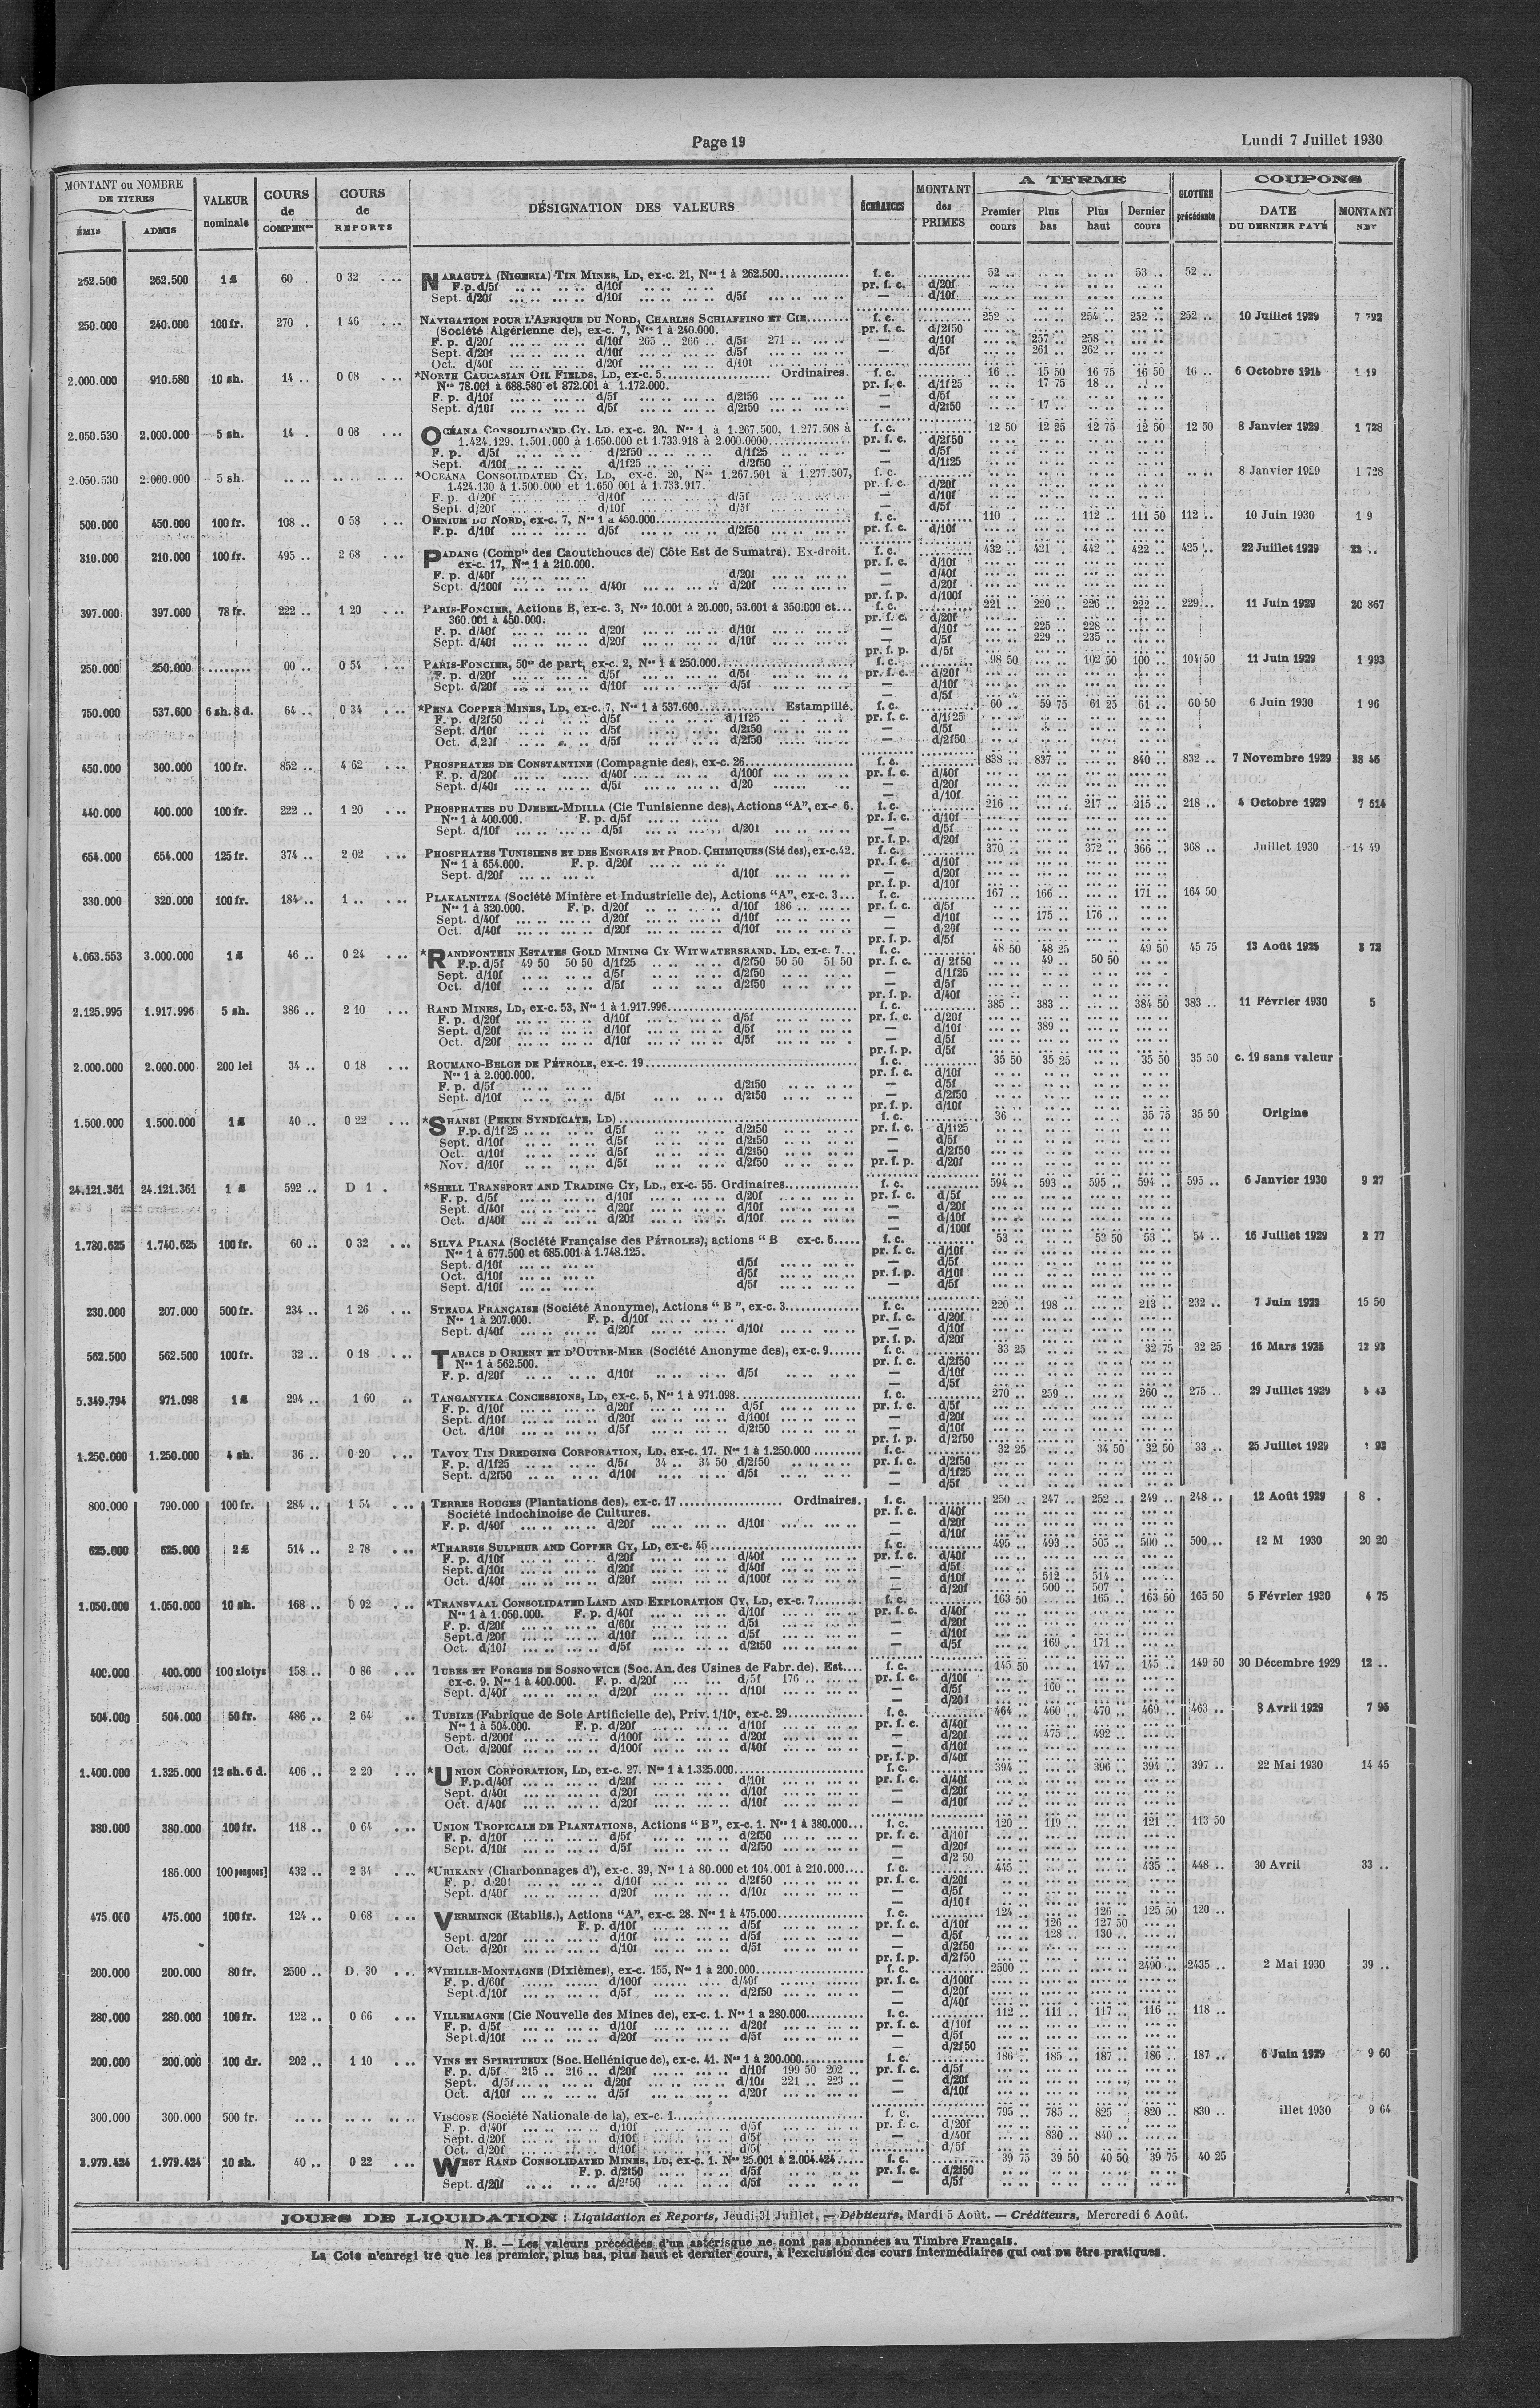 Page 19
Lundi 7 Juillet 1930
MONTANT ou NOMBRE DE TITRES
ÉMIS ADMIS
VALEUR nominale
COURS de COMPENon
COURS de REPORTS
DÉSIGNATION DES VALEURS
ÉCHÉANCES
MONTANT des PRIMES
A TERME
Premier cours Plus bas Plus haut Dernier cours
CLOTURE précédente
COUPONS
DATE DU DERNIER PAYÉ MONTANT NET
262.500 262.500 1 £ 60 . 0 32 . .. NARAGUTA (NIGERIA) TIN MINES, LD, ex-c. 21, Nos 1 à 262.500 f. c. 52 .. 53 .. 52 ..
F.p. d/5f d/10f pr. f. c. d/20f
Sept. d/20f d/10f d/5f — d/10f
250.000 240.000 100 fr. 270 . 1 46 . .. NAVIGATION POUR L'AFRIQUE DU NORD, CHARLES SCHIAFFINO ET CIE f. c. 252 .. 254 .. 252 .. 252 .. 10 Juillet 1929 7 792
(Société Algérienne de), ex-c. 7, Nos 1 à 240.000. pr. f. c. d/2f50
F. p. d/20f d/10f 265 .. 266 .. d/5f 271 .. — d/10f 257 .. 258 ..
Sept. d/20f d/10f d/5f — d/5f 261 .. 262 ..
Oct. d/40f d/20f d/10f
2.000.000 910.580 10 sh. 14 .. 0 08 . .. *NORTH CAUCASIAN OIL FIELDS, LD, ex-c. 5 Ordinaires. f. c. 16 .. 15 50 16 75 16 50 16 .. 6 Octobre 1915 1 19
Nos 78.001 à 688.580 et 872.001 à 1.172.000. pr. f. c. d/1f25 17 75 18 ..
F. p. d/10f d/5f d/2f50 — d/5f
Sept. d/10f d/5f d/2f50 — d/2f50 17 ..
2.050.530 2.000.000 5 sh. 14 . 0 08 . .. OCÉANA CONSOLIDATED CY. LD. ex-c. 20. Nos 1 à 1.267.500, 1.277.508 à f. c. 12 50 12 25 12 75 12 50 12 50 8 Janvier 1929 1 728
1.424.129. 1.501.000 à 1.650.000 et 1.733.918 à 2.000.0000 pr. f. c. d/2f50
F. p. d/5f d/2f50 d/1f25 — d/5f
Sept. d/10f d/1f25 d/2f50 — d/1f25
2.050.530 2.000.000 5 sh. *OCEANA CONSOLIDATED CY. LD, ex-c. 20, Nos 1.267.501 à 1.277.507, f. c. 8 Janvier 1929 1 728
1.424.130 à 1.500.000 et 1.650 001 à 1.733.917. pr. f. c. d/20f
F. p. d/20f d/10f d/5f — d/10f
Sept. d/20f d/10f d/5f — d/5f
500.000 450.000 100 fr. 108 .. 0 58 . .. OMNIUM DU NORD, ex-c. 7, Nos 1 à 450.000 f. c. 110 .. 112 .. 111 50 112 .. 10 Juin 1930 1 9
F.p. d/10f d/5f d/2f50 pr. f. c. d/10f
310.000 210.000 100 fr. 495 .. 2 68 . .. PADANG (Compie des Caoutchoucs de) Côte Est de Sumatra). Ex-droit. f. c. 432 .. 421 .. 442 .. 422 .. 425 .. 22 Juillet 1929 22 ..
ex-c. 17, Nos 1 à 210.000. pr. f. c. d/10f
F. p. d/40f d/20f — d/40f
Sept. d/100f d/40f d/20f — d/20f
pr. f. p. d/100f
397.000 397.000 78 fr. 222 .. 1 20 . .. PARIS-FONCIER, Actions B, ex-c. 3, Nos 10.001 à 20.000, 53.001 à 350.000 et f. c. 221 .. 220 .. 226 .. 222 .. 229 .. 11 Juin 1929 20 867
360.001 à 450.000. pr. f. c. d/20f
F. p. d/40f d/20f d/10f — d/10f 225 .. 228 ..
Sept. d/40f d/20f d/10f — d/5f 229 .. 235 ..
pr. f. p. d/5f
250.000 250.000 00 .. 0 54 . .. PARIS-FONCIER, 50es de part, ex-c. 2, Nos 1 à 250.000 f. c. 98 50 102 50 100 .. 104 50 11 Juin 1929 1 993
F. p. d/20f d/5f d/5f pr. f. c. d/20f
Sept. d/20f d/10f d/5f — d/10f
— d/5f
750.000 537.600 6 sh. 8 d. 64 .. 0 34 . .. *PENA COPPER MINES, LD, ex-c. 7, Nos 1 à 537.600 Estampillé. f. c. 60 .. 59 75 61 25 61 .. 60 50 6 Juin 1930 1 96
F. p. d/2f50 d/5f d/1f25 pr. f. c. d/1f25
Sept. d/10f d/5f d/2f50 — d/5f
Oct. d/20f d/5f d/2f50 — d/2f50
450.000 300.000 100 fr. 852 .. 4 62 . .. PHOSPHATES DE CONSTANTINE (Compagnie des), ex-c. 26 f. c. 838 .. 837 .. 840 .. 832 .. 7 Novembre 1929 38 46
F. p. d/20f d/40f d/100f pr. f. c. d/40f
Sept. d/40f d/5f d/20 — d/20f
— d/10f
440.000 400.000 100 fr. 222 .. 1 20 . .. PHOSPHATES DU DJEBEL-MDILLA (Cie Tunisienne des), Actions "A", ex-c 6. f. c. 216 .. 217 .. 215 .. 218 .. 4 Octobre 1929 7 614
Nos 1 à 400.000. F. p. d/5f pr. f. c. d/10f
Sept. d/10f d/5f d/20f — d/5f
pr. f. p. d/20f
654.000 654.000 125 fr. 374 .. 2 02 . .. PHOSPHATES TUNISIENS ET DES ENGRAIS ET PROD. CHIMIQUES (Sté des), ex-c.42. f. c. 370 .. 372 .. 366 .. 368 .. Juillet 1930 14 49
Nos 1 à 654.000. F. p. d/20f pr. f. c. d/10f
Sept. d/20f d/10f — d/20f
pr. f. p. d/10f
330.000 320.000 100 fr. 184 .. 1 .. . .. PLAKALNITZA (Société Minière et Industrielle de), Actions "A", ex-c. 3 f. c. 167 .. 166 .. 171 .. 164 50
Nos 1 à 320.000. F. p. d/20f d/10f 186 .. pr. f. c. d/5f
Sept. d/40f d/20f d/10f — d/10f 175 .. 176 ..
Oct. d/40f d/20f d/10f — d/20f
pr. f. p. d/5f
4.063.553 3.000.000 1 £ 46 .. 0 24 . .. *RANDFONTEIN ESTATES GOLD MINING CY WITWATERSRAND, LD, ex-c. 7 f. c. 48 50 48 25 49 50 45 75 13 Août 1925 3 72
F.p. d/5f 49 50 50 50 d/1f25 d/2f50 50 50 51 50 pr. f. c. d/2f50 49 .. 50 50
Sept. d/10f d/5f d/2f50 — d/1f25
Oct. d/10f d/5f d/2f50 — d/5f
pr. f. p. d/40f
2.125.995 1.917.996 5 sh. 386 .. 2 10 . .. RAND MINES, LD, ex-c. 53, Nos 1 à 1.917.996 f. c. 385 .. 383 .. 384 50 383 .. 11 Février 1930 5
F. p. d/20f d/10f d/5f pr. f. c. d/20f
Sept. d/20f d/10f d/5f — d/10f 389 ..
Oct. d/20f d/10f d/5f — d/5f
pr. f. p. d/5f
2.000.000 2.000.000 200 lei 34 .. 0 18 . .. ROUMANO-BELGE DE PÉTROLE, ex-c. 19 f. c. 35 50 35 25 35 50 35 50 c. 19 sans valeur
Nos 1 à 2.000.000. pr. f. c. d/10f
F. p. d/5f d/2f50 — d/5f
Sept. d/10f d/5f d/2f50 — d/2f50
pr. f. p. d/10f
1.500.000 1.500.000 1 £ 40 .. 0 22 . .. *SHANSI (PEKIN SYNDICATE, LD) f. c. 36 .. 35 75 35 50 Origine
F.p. d/1f25 d/5f d/2f50 pr. f. c. d/1f25
Sept. d/10f d/5f d/2f50 — d/5f
Oct. d/10f d/5f d/2f50 — d/2f50
Nov. d/10f d/5f d/2f50 pr. f. p. d/20f
24.121.361 24.121.361 1 £ 592 .. D 1 . *SHELL TRANSPORT AND TRADING CY, LD., ex-c. 55. Ordinaires f. c. 594 .. 593 .. 595 .. 594 .. 595 .. 6 Janvier 1930 9 27
F. p. d/5f d/10f d/20f pr. f. c. d/5f
Sept. d/40f d/20f d/10f — d/20f
Oct. d/40f d/20f d/10f — d/10f
— d/100f
1.780.625 1.740.625 100 fr. 60 .. 0 32 . .. SILVA PLANA (Société Française des PÉTROLES), actions " B ex-c. 6 f. c. 53 .. 53 50 53 .. 54 .. 16 Juillet 1929 2 77
Nos 1 à 677.500 et 685.001 à 1.748.125. pr. f. c. d/10f
Sept. d/10f d/5f — d/5f
Oct. d/10f d/5f pr. f. p. d/10f
Sept. d/10f d/5f — d/5f
230.000 207.000 500 fr. 234 .. 1 26 . .. STEAUA FRANÇAISE (Société Anonyme), Actions " B ", ex-c. 3 f. c. 220 .. 198 .. 213 .. 232 .. 7 Juin 1923 15 50
Nos 1 à 207.000. F. p. d/10f pr. f. c. d/20f
Sept. d/40f d/20f d/10f — d/10f
pr. f. p. d/20f
562.500 562.500 100 fr. 32 .. 0 18 . .. TABACS D ORIENT ET D'OUTRE-MER (Société Anonyme des), ex-c. 9 f. c. 33 25 32 75 32 25 16 Mars 1925 12 93
Nos 1 à 562.500. pr. f. c. d/2f50
F. p. d/20f d/10f d/5f — d/10f
— d/5f
5.349.794 971.098 1 £ 294 .. 1 60 .. TANGANYIKA CONCESSIONS, LD, ex-c. 5, Nos 1 à 971.098 f. c. 270 .. 259 .. 260 .. 275 .. 29 Juillet 1929 5 43
F. p. d/10f d/20f d/5f pr. f. c. d/5f
Sept. d/10f d/20f d/100f — d/20f
Oct. d/10f d/5f d/2f50 — d/10f
pr. f. p. d/2f50
1.250.000 1.250.000 4 sh. 36 .. 0 20 . .. TAVOY TIN DREDGING CORPORATION, LD. ex-c. 17. Nos 1 à 1.250.000 f. c. 32 25 34 50 32 50 33 .. 25 Juillet 1929 1 93
F. p. d/1f25 d/5f 34 .. 34 50 d/2f50 pr. f. c. d/2f50
Sept. d/2f50 d/10f d/5f — d/1f25
— d/5f
800.000 790.000 100 fr. 284 .. 1 54 . .. TERRES ROUGES (Plantations des), ex-c. 17 Ordinaires. f. c. 250 .. 247 .. 252 .. 249 .. 248 .. 12 Août 1929 8 .
Société Indochinoise de Cultures. pr. f. c. d/40f
F. p. d/40f d/20f d/10f — d/20f
— d/10f
625.000 625.000 2 £ 514 .. 2 78 . .. *THARSIS SULPHUR AND COPPER CY, LD, ex-c. 45 f. c. 495 .. 493 .. 505 .. 500 .. 500 .. 12 M 1930 20 20
F. p. d/10f d/20f d/40f pr. f. c. d/40f
Sept. d/10f d/20f d/40f — d/5f
Oct. d/40f d/20f d/100f — d/10f 512 .. 514 ..
— d/20f 500 .. 507 .
1.050.000 1.050.000 10 sh. 168 .. 0 92 . .. *TRANSVAAL CONSOLIDATED LAND AND EXPLORATION CY, LD, ex-c. 7 f. c. 163 50 165 .. 163 50 165 50 5 Février 1930 4 75
Nos 1 à 1.050.000. F. p. d/40f d/10f pr. f. c. d/40f
F. p. d/20f d/60f d/5f — d/20f
Sept. d/20f d/10f d/5f — d/10f
Oct. d/10f d/5f d/2f50 — d/5f 169 .. 171 ..
400.000 400.000 100 zlotys 158 .. 0 86 . .. TUBES ET FORGES DE SOSNOWICE (Soc. An. des Usines de Fabr. de). Est f. c. 145 50 147 .. 145 .. 149 50 30 Décembre 1929 12 ..
ex-c. 9. Nos 1 à 400.000. F. p. d/20f d/5f 176 .. pr. f. c. d/10f
Sept. d/40f d/20f d/10f — d/5f 160 ..
— d/20f
504.000 504.000 50 fr. 486 .. 2 64 . .. TUBIZE (Fabrique de Soie Artificielle de), Priv. 1/10e, ex-c. 29 f. c. 464 .. 460 .. 470 .. 469 .. 463 .. 8 Avril 1929 7 95
Nos 1 à 504.000. F. p. d/20f d/10f pr. f. c. d/40f
Sept. d/200f d/100f d/20f — d/20f 475 .. 492 ..
Oct. d/200f d/100f d/40f — d/10f
pr. f. p. d/40f
1.400.000 1.325.000 12 sh. 6 d. 406 .. 2 20 . .. *UNION CORPORATION, LD, ex-c. 27. Nos 1 à 1.325.000 f. c. 394 .. 396 .. 394 .. 397 .. 22 Mai 1930 14 45
F.p. d/40f d/20f d/10f pr. f. c. d/40f
Sept. d/40f d/20f d/10f — d/20f
Oct. d/40f d/20f d/10f — d/10f
380.000 380.000 100 fr. 118 .. 0 64 . .. UNION TROPICALE DE PLANTATIONS, Actions " B ", ex-c. 1. Nos 1 à 380.000 f. c. 120 .. 119 .. 121 .. 113 50
F. p. d/10f d/5f d/2f50 pr. f. c. d/10f
Sept. d/10f d/5f d/2f50 — d/20f
— d/2 50
186.000 100 pengoes] 432 .. 2 34 . .. *URIKANY (Charbonnages d'), ex-c. 39, Nos 1 à 80.000 et 104.001 à 210.000 f. c. 445 .. 435 .. 448 .. 30 Avril 33 ..
F. p. d/20f d/10f d/2f50 pr. f. c. d/20f
Sept. d/40f d/20f d/10f — d/5f
— d/10f
475.000 475.000 100 fr. 124 .. 0 68 . .. VERMINCK (Etablis.), Actions "A", ex-c. 28. Nos 1 à 475.000 f. c. 124 .. 126 .. 125 50 120 ..
F. p. d/10f d/5f pr. f. c. d/10f 126 .. 127 50
Sept. d/20f d/10f d/5f — d/5f 128 .. 130 ..
Oct. d/20f d/10f d/5f — d/2f50
pr. f. p. d/2f50
200.000 200.000 80 fr. 2500 .. D. 30 . .. *VIEILLE-MONTAGNE (Dixièmes), ex-c. 155, Nos 1 à 200.000 f. c. 2500 .. 2490 .. 2435 .. 2 Mai 1930 39 ..
F. p. d/60f d/100f d/40f pr. f. c. d/100f
Sept. d/10f d/5f d/2f50 — d/20f
— d/40f
280.000 280.000 100 fr. 122 .. 0 66 . .. VILLEMAGNE (Cie Nouvelle des Mines de), ex-c. 1. Nos 1 a 280.000 f. c. 112 .. 111 .. 117 .. 116 .. 118 ..
F. p. d/5f d/10f d/20f pr. f. c. d/10f
Sept. d/10f d/20f d/5f — d/5f
— d/2f50
200.000 200.000 100 dr. 202 .. 1 10 . .. VINS ET SPIRITUEUX (Soc. Hellénique de), ex-c. 41. Nos 1 à 200.000 f. c. 186 .. 185 .. 187 .. 186 .. 187 .. 6 Juin 1929 9 60
F. p. d/5f 215 .. 216 .. d/20f d/10f 199 50 202 .. pr. f. c. d/5f
Sept. d/5f d/20f d/10f 221 .. 223 .. — d/20f
Oct. d/10f d/5f d/20f — d/10f
300.000 300.000 500 fr. VISCOSE (Société Nationale de la), ex-c. 1 f. c. 795 .. 785 .. 825 .. 820 .. 830 .. illet 1930 9 64
F. p. d/40f d/10f d/5f pr. f. c. d/20f
Sept. d/20f d/10f d/5f — d/40f 830 .. 840 ..
Oct. d/20f d/10f d/5f d/5f
3.979.424 1.979.424 10 sh. 40 .. 0 22 . .. WEST RAND CONSOLIDATED MINES, LD, ex-c. 1. Nos 25.001 à 2.004.424 f. c. 39 75 39 50 40 50 39 75 40 25
F. p. d/2f50 d/5f pr. f. c. d/2f50
Sept. d/20f d/2f50 d/5f — d/5f
JOURS DE LIQUIDATION : Liquidation et Reports, Jeudi 31 Juillet. — Débiteurs, Mardi 5 Août. — Créditeurs, Mercredi 6 Août.
N. B. — Les valeurs précédées d'un astérisque ne sont pas abonnées au Timbre Français.
La Cote n'enregi tre que les premier, plus bas, plus haut et dernier cours, à l'exclusion des cours intermédiaires qui ont pu être pratiqués.